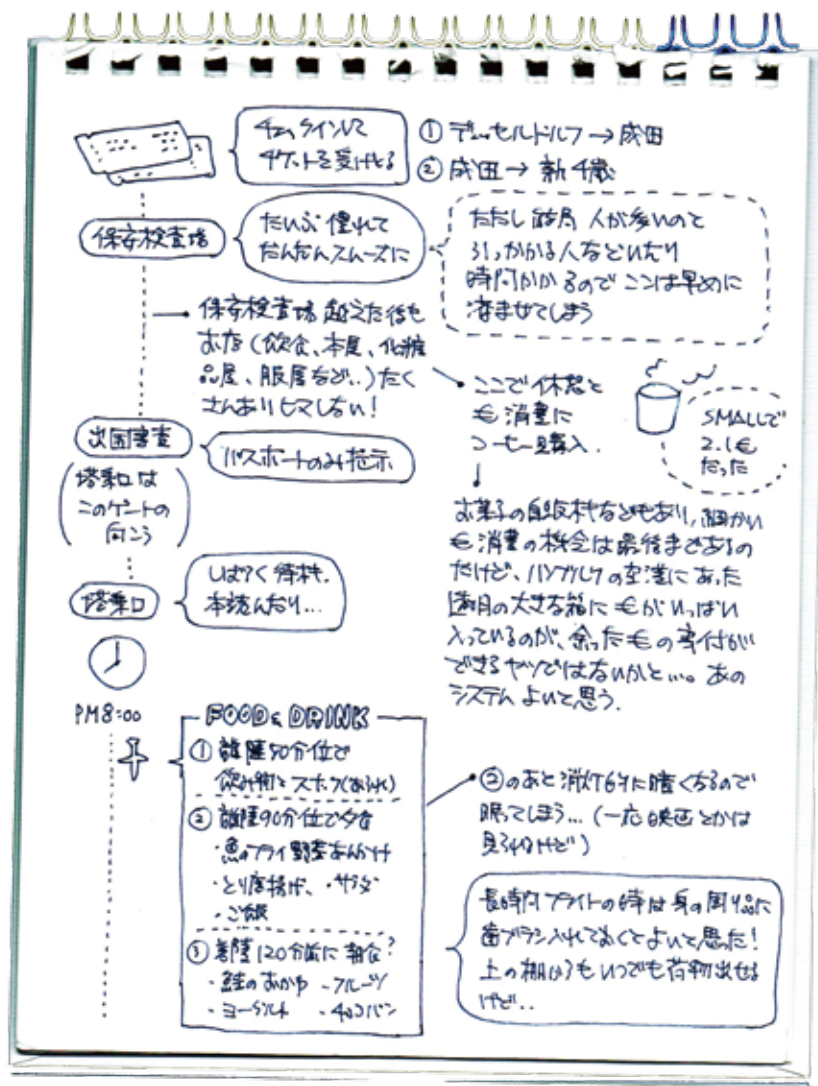 チェックインして
チケットを受けとる
① デュッセルドルフ → 成田
② 成田 → 新千歳
保安検査場
だいぶ慣れて
だんだんスムーズに
ただし結局 人が多いので
引っかかる人などいたり
時間かかるので ここは早めに
済ませてしまう
保安検査場 越えた後も
お店(飲食、本屋、化粧
品屋、服屋など..)たく
さんあり ヒマしない!
ここで休憩と
€ 消費に
コーヒー購入.
SMALLで
2.1€
だった
出国審査
パスポートのみ提示
(搭乗口は
このゲートの
向こう)
お菓子の自販機などもあり、細かい
€ 消費の機会は最後まであるの
だけど、ハンブルクの空港にあった
透明の大きな箱に €がいっぱい
入っているのが、余った€の寄付が
できるヤツではないかと…。あの
システム よいと思う.
搭乗口
しばらく待機.
本読んだり…
PM8:00
FOOD & DRINK
① 離陸50分位で
飲み物とスナック(あられ)
② 離陸90分位で夕食
・魚のフライ野菜あんかけ
・とり唐揚げ、・サラダ
・ご飯
③ 着陸120分前に 朝食?
・鮭のおかゆ ・フルーツ
・ヨーグルト ・チョコパン
②のあと 消灯的に暗くなるので
眠ってしまう…(一応映画とかは
見るけど)
長時間フライトの時は身の周り品に
歯ブラシ入れておくとよいと思った!
上の棚からもいつでも荷物出せる
けど..